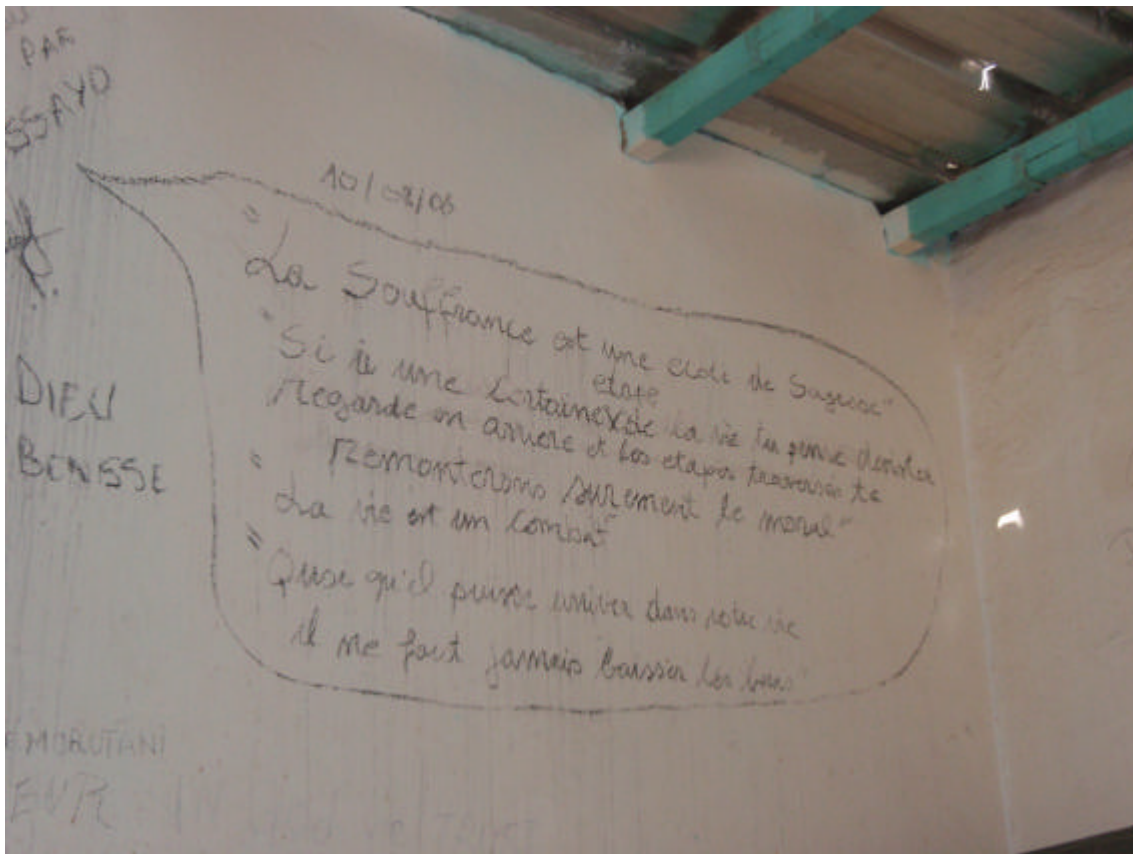 PAR
SSAYO
DIEU
BENISSE
10/02/06
" La Souffrance est une ecole de Sagesse "
" Si à une certaine etape de la vie tu pense demissioner
Regarde en arriere et les etapes traversés te
Remonterons surement le moral "
" La vie est un combat "
" Quoi qu'il puisse arriver dans votre vie
il ne faut jamais baisser les bras
EMORUTANI
EUR